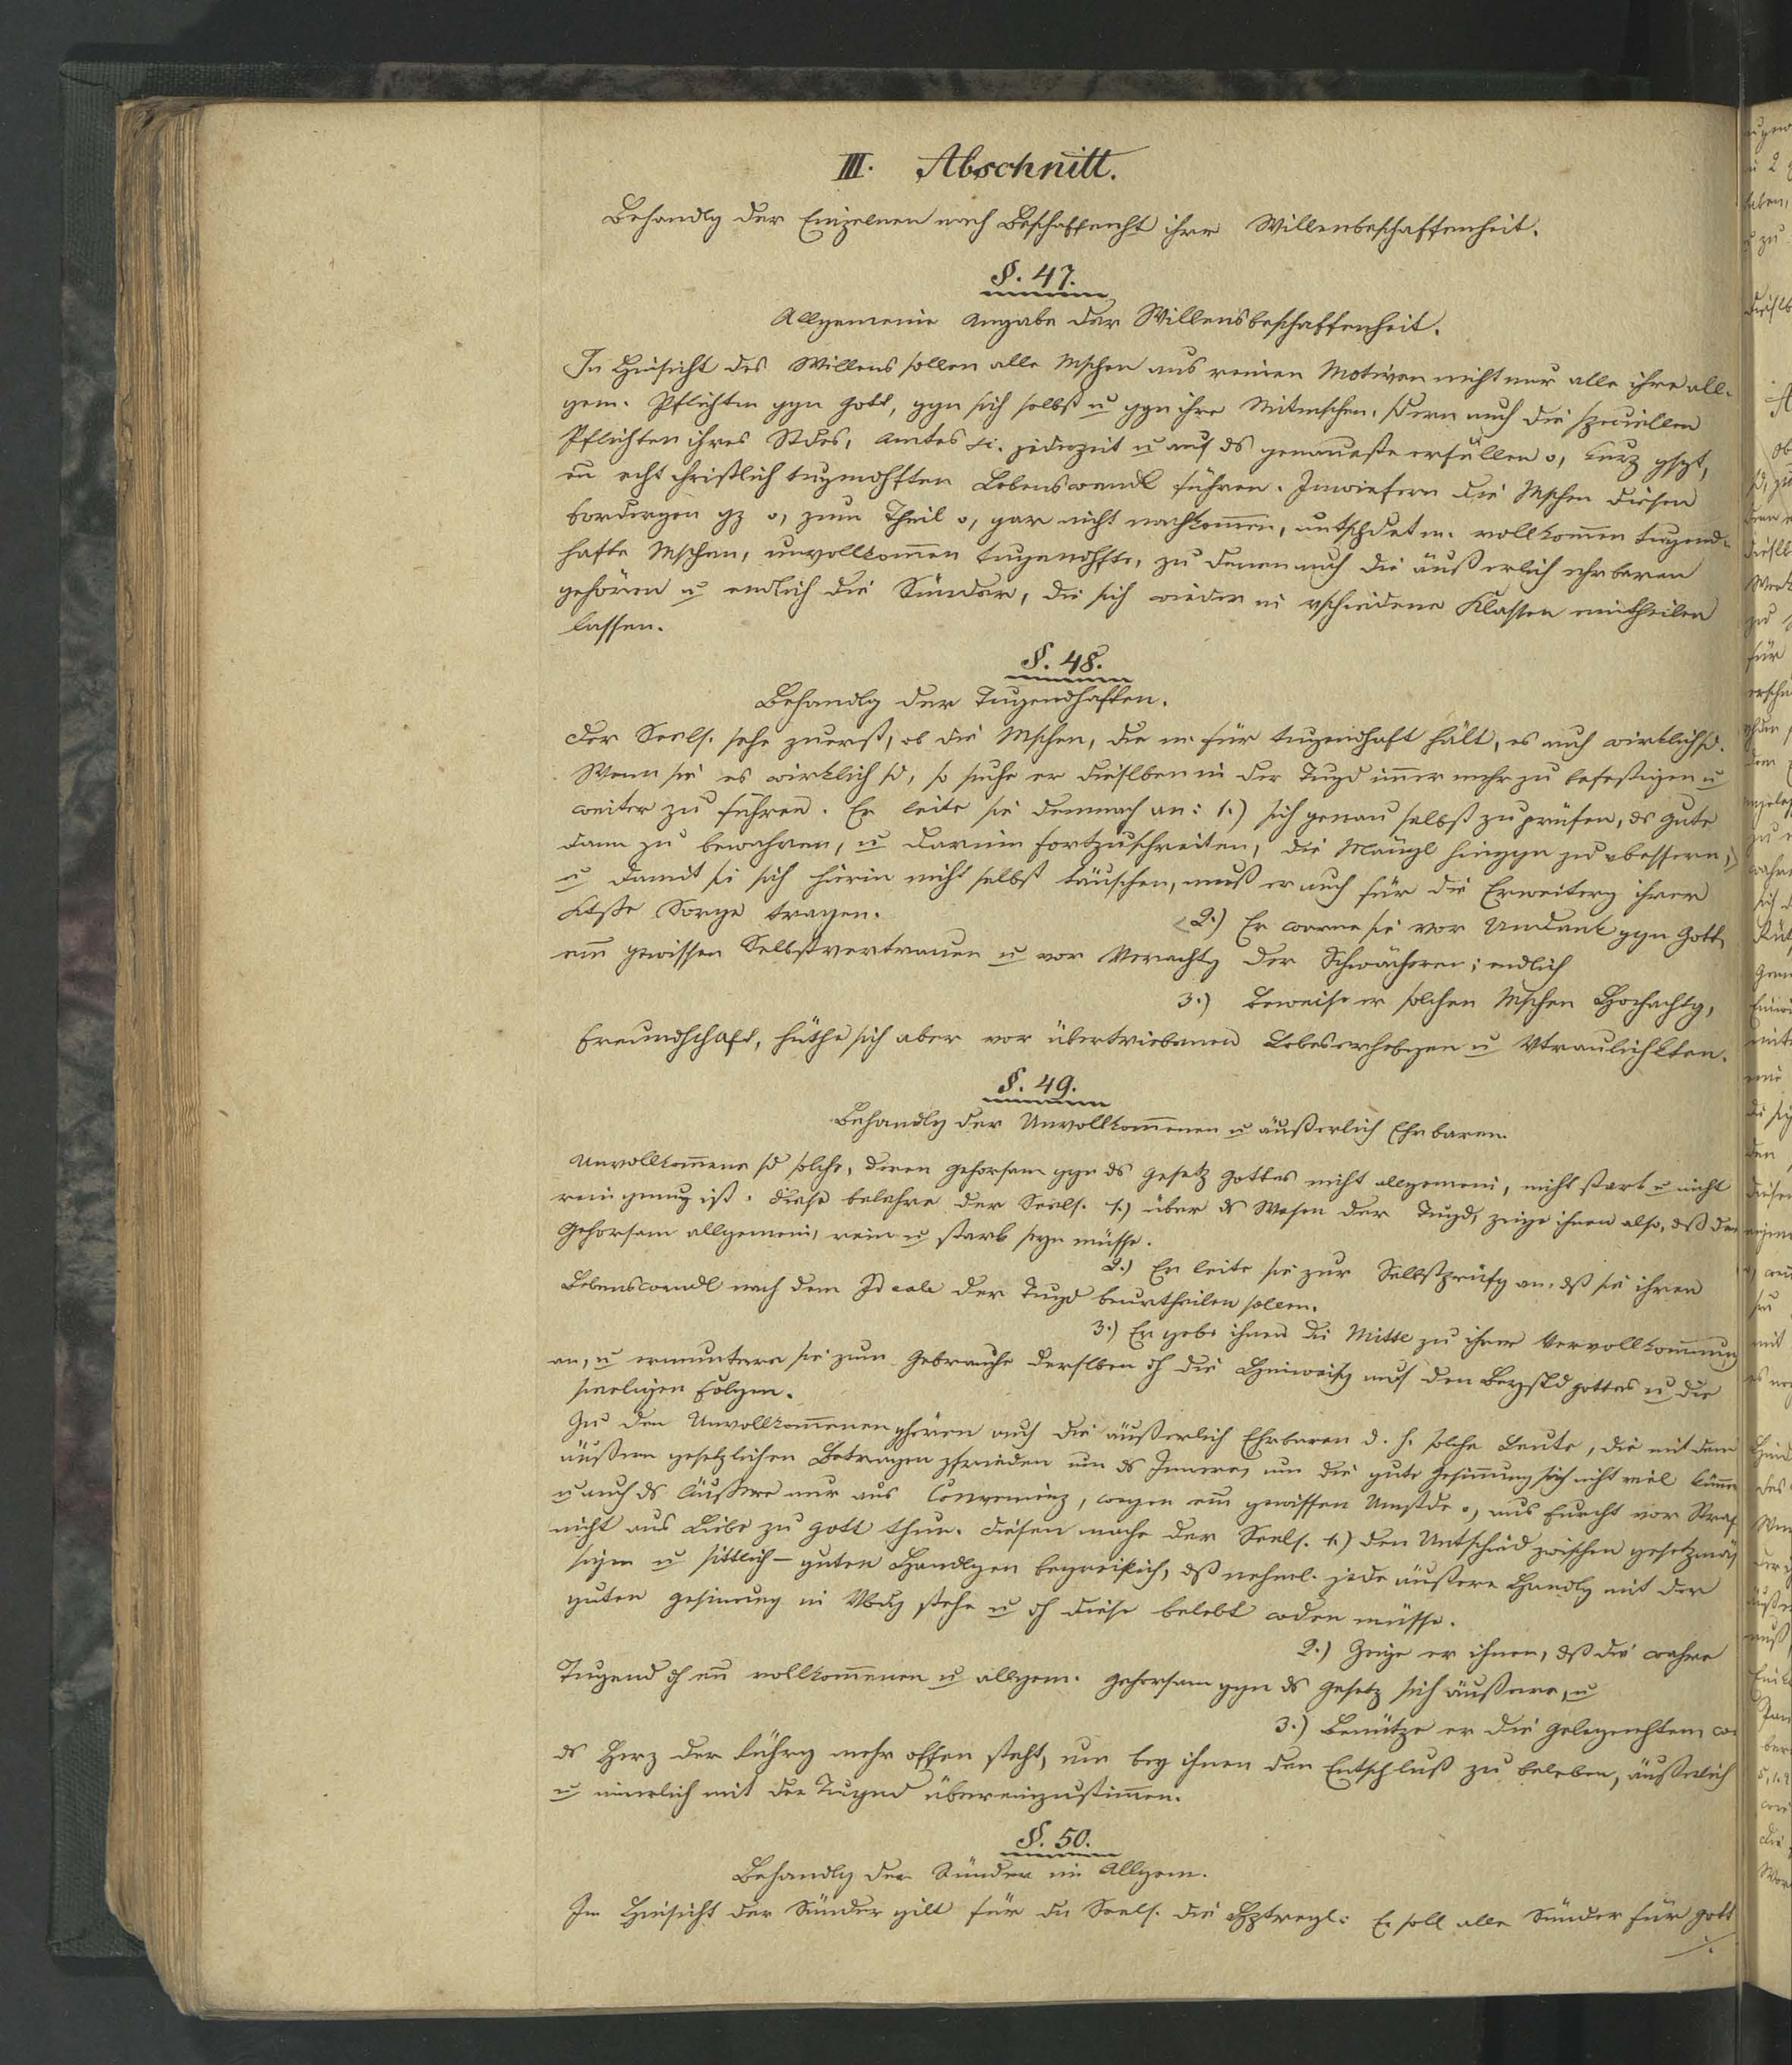 III. Abschnitt.
Behandlg der Einzelnen nach Beschaffenht ihrer Willensbeschaffenheit.
§. 47.
Allgemeine Angabe der Willensbeschaffenheit.
In Hinsicht des Willens sollen alle Mschen aus reinen Motiven nicht nur alle ihre all-
gem. Pflichten ggn Gott, ggn sich selbst u ggn ihre Mitmschen, sdern auch die speciellen
Pflichten ihres Stdes, Amtes etc. jederzeit u auf ds genaueste erfüllen o, kurz gsgt,
ein echt christlich tugendhften Lebenswandl führen. Inwiefern die Mschen diesen
Fordergen gz o, zum Theil o, gar nicht nachkom̅en, untschdet m. vollkom̅en tugend-
hafte Mschen, unvollkom̅en tugendhfte, zu denen auch die äußerlich ehrbaren
gehören u endlich die Sünder, die sich wieder in vschiedene Klassen eintheilen
lassen.
§. 48.
Behandlg der Tugendhaften.
Der Seels. sehe zuerst, ob die Mschen, die er für tugendhaft hält, es auch wirklich sd.
Wenn sie es wirklich sd, so suche er dieslben in der Tugd im̅er mehr zu befestigen u
weiter zu führen. Er leite sie demnach an: 1.) sich genau selbst zu prüfen, ds Gute
dann zu bewahren, u darin fortzuschreiten, die Mängl hinggn zu vbessern,
u damit sie sich hierin nicht selbst täuschen, muß er auch für die Erweiterg ihrer
Ktße Sorge tragen.
2.) Er warne sie vor Undank ggn Gott,
ein̅ gewissen Selbstvertrauen u vor Verachtg der Schwächeren; endlich
3.) beweise er solchen Mschen Hochachtg,
Freundschaft, hüthe sich aber vor übertriebenen Lobeserhebgen u Vtraulichktten.
§. 49.
Behandlg der Unvollkom̅enen u äußerlich Ehrbaren
Unvollkom̅ene sd solche, deren Gehorsam ggn ds Gesetz Gottes nicht allgemein, nicht stark u nicht
rein genug ist. Diese belehre der Seels. 1.) über ds Wesen der Tugd, zeige ihnen also, dß der
Gehorsam allgemein, rein u stark seyn müsse.
2.) Er leite sie zur Selbstprüfg an, dß sie ihren
Lebenswandl nach dem Ideale der Tugd beurtheilen sollen.
3.) Er gebe ihnen die Mittel zu ihrer Vervollkom̅nung
an, u ermuntere sie zum Gebrauche derslben dh die Hinweisg auf den Beystd Gottes u die
seeligen Folgen.
Zu den Unvollkom̅enen ghören auch die äußerlich Ehrbaren d. h. solche Leute, die mit dem
äußern gesetzlichen Betragen zfrieden um ds Innere, um die gute Gesinnung sich nicht viel küm̅
u auch ds Äußere nur aus Convenienz, wegen ein̅ gewissen Umstde o, aus Furcht vor Straf
nicht aus Liebe zu Gott thun. Diesen mache der Seels. 1.) den Untschied zwischen gesetzmäs
sigen u sittlich-guten Handlgen begreiflich, dß nehml. jede äußere Handlg mit der
guten Gesinnung in Vbdg stehe u dh diese belebt wden müsse.
2.) Zeige er ihnen, dß die wahre
Tugend dh ein̅ vollkom̅enen u allgem. Gehorsam ggn ds Gesetz sich äußere, u
3.) Benütze er die Gelegenhten, wo
ds Herz der Führg mehr offen steht, um bey ihnen den Entschluß zu beleben, äußerlich
u innerlich mit der Tugend übereinzustim̅en.
§. 50.
Behandlg der Sünder im Allgem.
In Hinsicht der Sünder gilt für den Seels. die Hptregl: Er soll alle Sünder für Gott